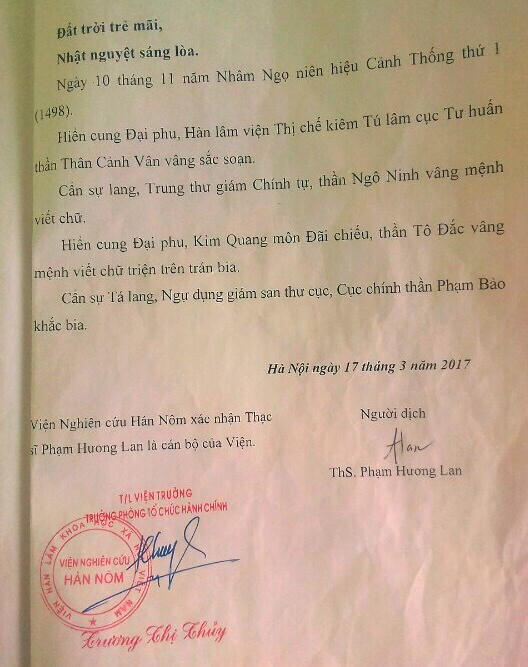 Đất trời trẻ mãi,
Nhật nguyệt sáng lòa.
Ngày 10 tháng 11 năm Nhâm Ngọ niên hiệu Cảnh Thống thứ 1
(1498).
Hiển cung Đại phu, Hàn lâm viện Thị chế kiêm Tú lâm cục Tư huấn
thần Thân Cảnh Vân vâng sắc soạn.
Cẩn sự lang, Trung thư giám Chính tự, thần Ngô Ninh vâng mệnh
viết chữ.
Hiển cung Đại phu, Kim Quang môn Đãi chiếu, thần Tô Đắc vâng
mệnh viết chữ triện trên trán bia.
Cẩn sự Tá lang, Ngự dụng giám san thư cục, Cục chính thần Phạm Bảo
khắc bia.
Hà Nội ngày 17 tháng 3 năm 2017
Viện Nghiên cứu Hán Nôm xác nhận Thạc
sĩ Phạm Hương Lan là cán bộ của Viện.
Người dịch
ThS. Phạm Hương Lan
T/L VIỆN TRƯỞNG
TRƯỞNG PHÒNG TỔ CHỨC HÀNH CHÍNH
VIỆN HÀN LÂM KHOA HỌC XÃ HỘI VIỆT NAM
VIỆN NGHIÊN CỨU
HÁN NÔM
Trương Thị Thủy